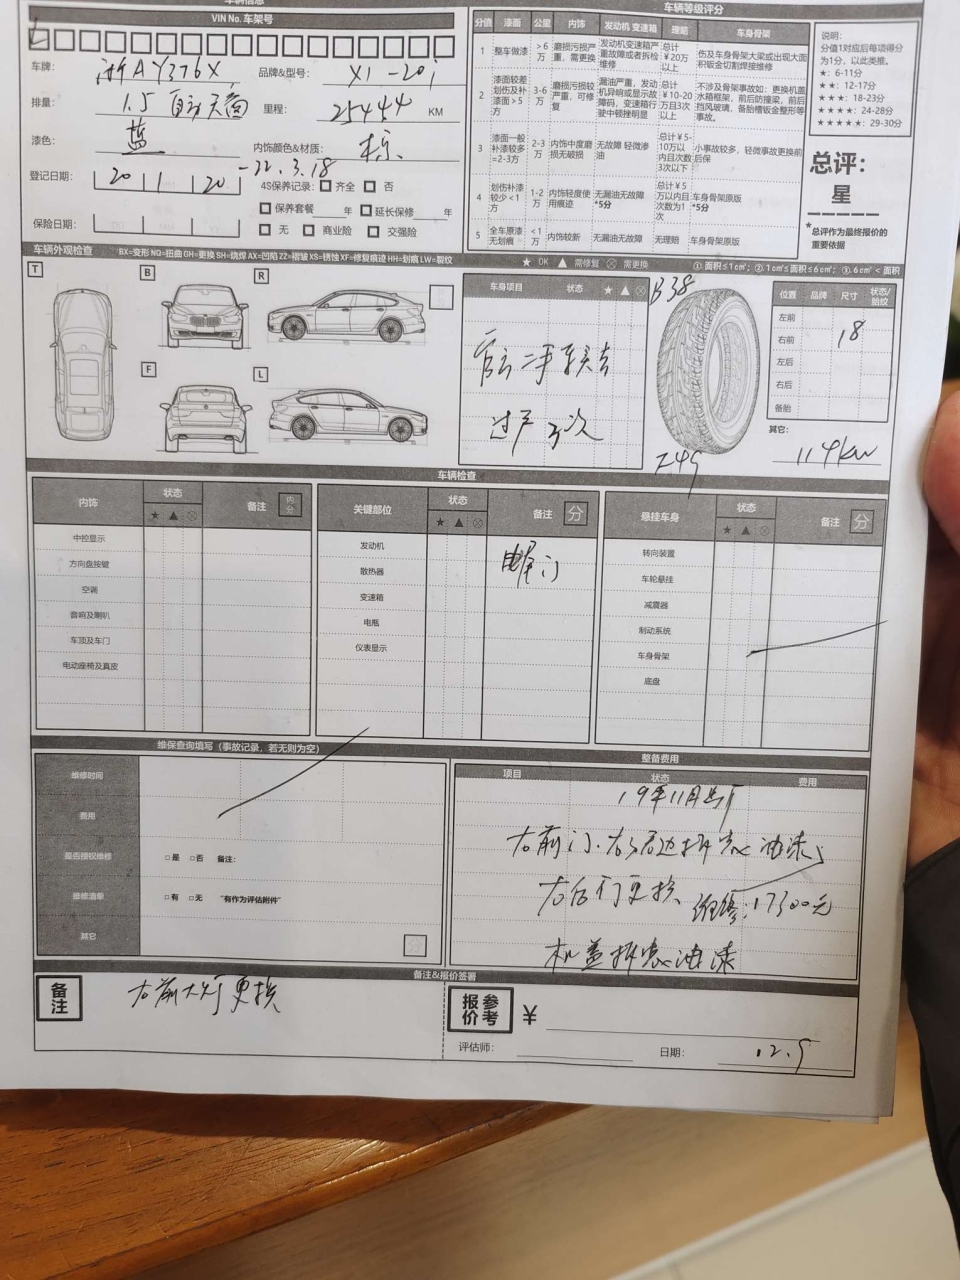 车辆信息
VIN No. 车架号
车牌: 浙AY376X 品牌&型号: X1-20i
排量: 1.5 自动天窗 里程: 25444 KM
漆色: 蓝 内饰颜色&材质: 棕
登记日期: 20 1 20 -22.3.18
4S保养记录: □ 齐全 □ 否
□ 保养套餐 年 □ 延长保修 年
保险日期: □ 无 □ 商业险 □ 交强险
车辆等级评分
分值 漆面 公里 内饰 发动机 变速箱 理赔 车身骨架
1 整车做漆 >6万 磨损污损严重,需更换 发动机变速箱严重故障或者拆检维修 总计¥20万以上 伤及车身骨架大梁或出现大面积钣金切割焊接维修
2 漆面较差 划伤及补漆面>5方 3-6万 磨损污损较严重,可修复 漏油严重,发动机异响或显示故障码,变速箱行驶中顿挫明显 总计¥10-20万且3次以上 不涉及骨架事故如:更换机盖水箱框架,前后防撞梁,前后挡风玻璃,备胎槽钣金整形等事故。
3 漆面一般补漆较多=2-3方 2-3万 内饰中度磨损无破损 无故障 轻微渗油 总计¥5-10万以内且次数3次以下 小事故较多,轻微事故更换前后保
4 划伤补漆较少<1方 1-2万 内饰轻度使用痕迹 无漏油无故障 *5分 总计¥5万以内且次数为1次 车身骨架原版 *5分
5 全车原漆无划痕 <1万 内饰较新 无漏油无故障 无理赔 车身骨架原版
说明:
分值1对应后每项得分为1分,以此类推。
★: 6-11分
★★: 12-17分
★★★: 18-23分
★★★★: 24-28分
★★★★★: 29-30分
总评:
星
*总评作为最终报价的重要依据
车辆外观检查 BX=变形 NQ=扭曲 GH=更换 SH=烧焊 AX=凹陷 ZZ=褶皱 XS=锈蚀 XF=修复痕迹 HH=划痕 LW=裂纹 ★ OK ▲ 需修复 ⊗ 需更换 ①. 面积≤1c㎡; ②. 1c㎡≤面积≤6c㎡; ③. 6c㎡<面积
T B R
F L
车身项目 状态 ★ ▲ ⊗
官方二手车
过户 3次
B38
249
位置 品牌 尺寸 状态/胎纹
左前
右前 18
左后
右后
备胎
其它: 114kw
车辆检查
内饰 状态 ★ ▲ ⊗ 备注 内分
中控显示
方向盘按键
空调
音响及喇叭
车顶及车门
电动座椅及真皮
关键部位 状态 ★ ▲ ⊗ 备注 分
发动机
散热器
变速箱
电瓶
仪表显示
电尾门
悬挂车身 状态 ★ ▲ ⊗ 备注 分
转向装置
车轮悬挂
减震器
制动系统
车身骨架
底盘
维保查询填写(事故记录,若无则为空)
维修时间
费用
是否授权维修 □是 □否 备注:
维修清单 □有 □无 “有作为评估附件”
其它 分
整备费用
项目 状态 费用
19年11月出厂
右前门.右后边拆装 油漆
右后门更换 维修:17300元
机盖拆装油漆
备注&报价签署
备注 右前大灯更换
参考报价 ¥
评估师: 日期: 12.9